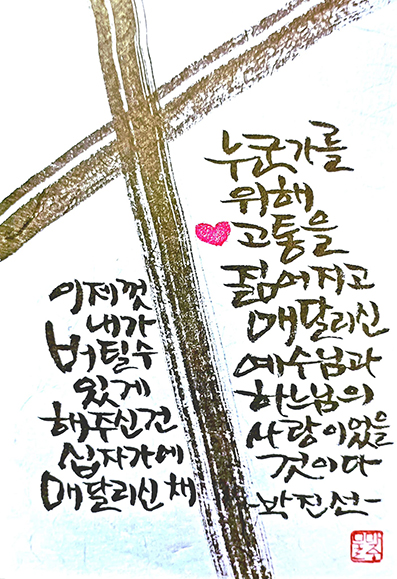 이제껏
내가
버틸수
있게
해주신건
십자가에
매달리신 채
누군가를
위해
고통을
짊어지고
매달리신
예수님과
하느님의
사랑이었을
것이다
-박진선-